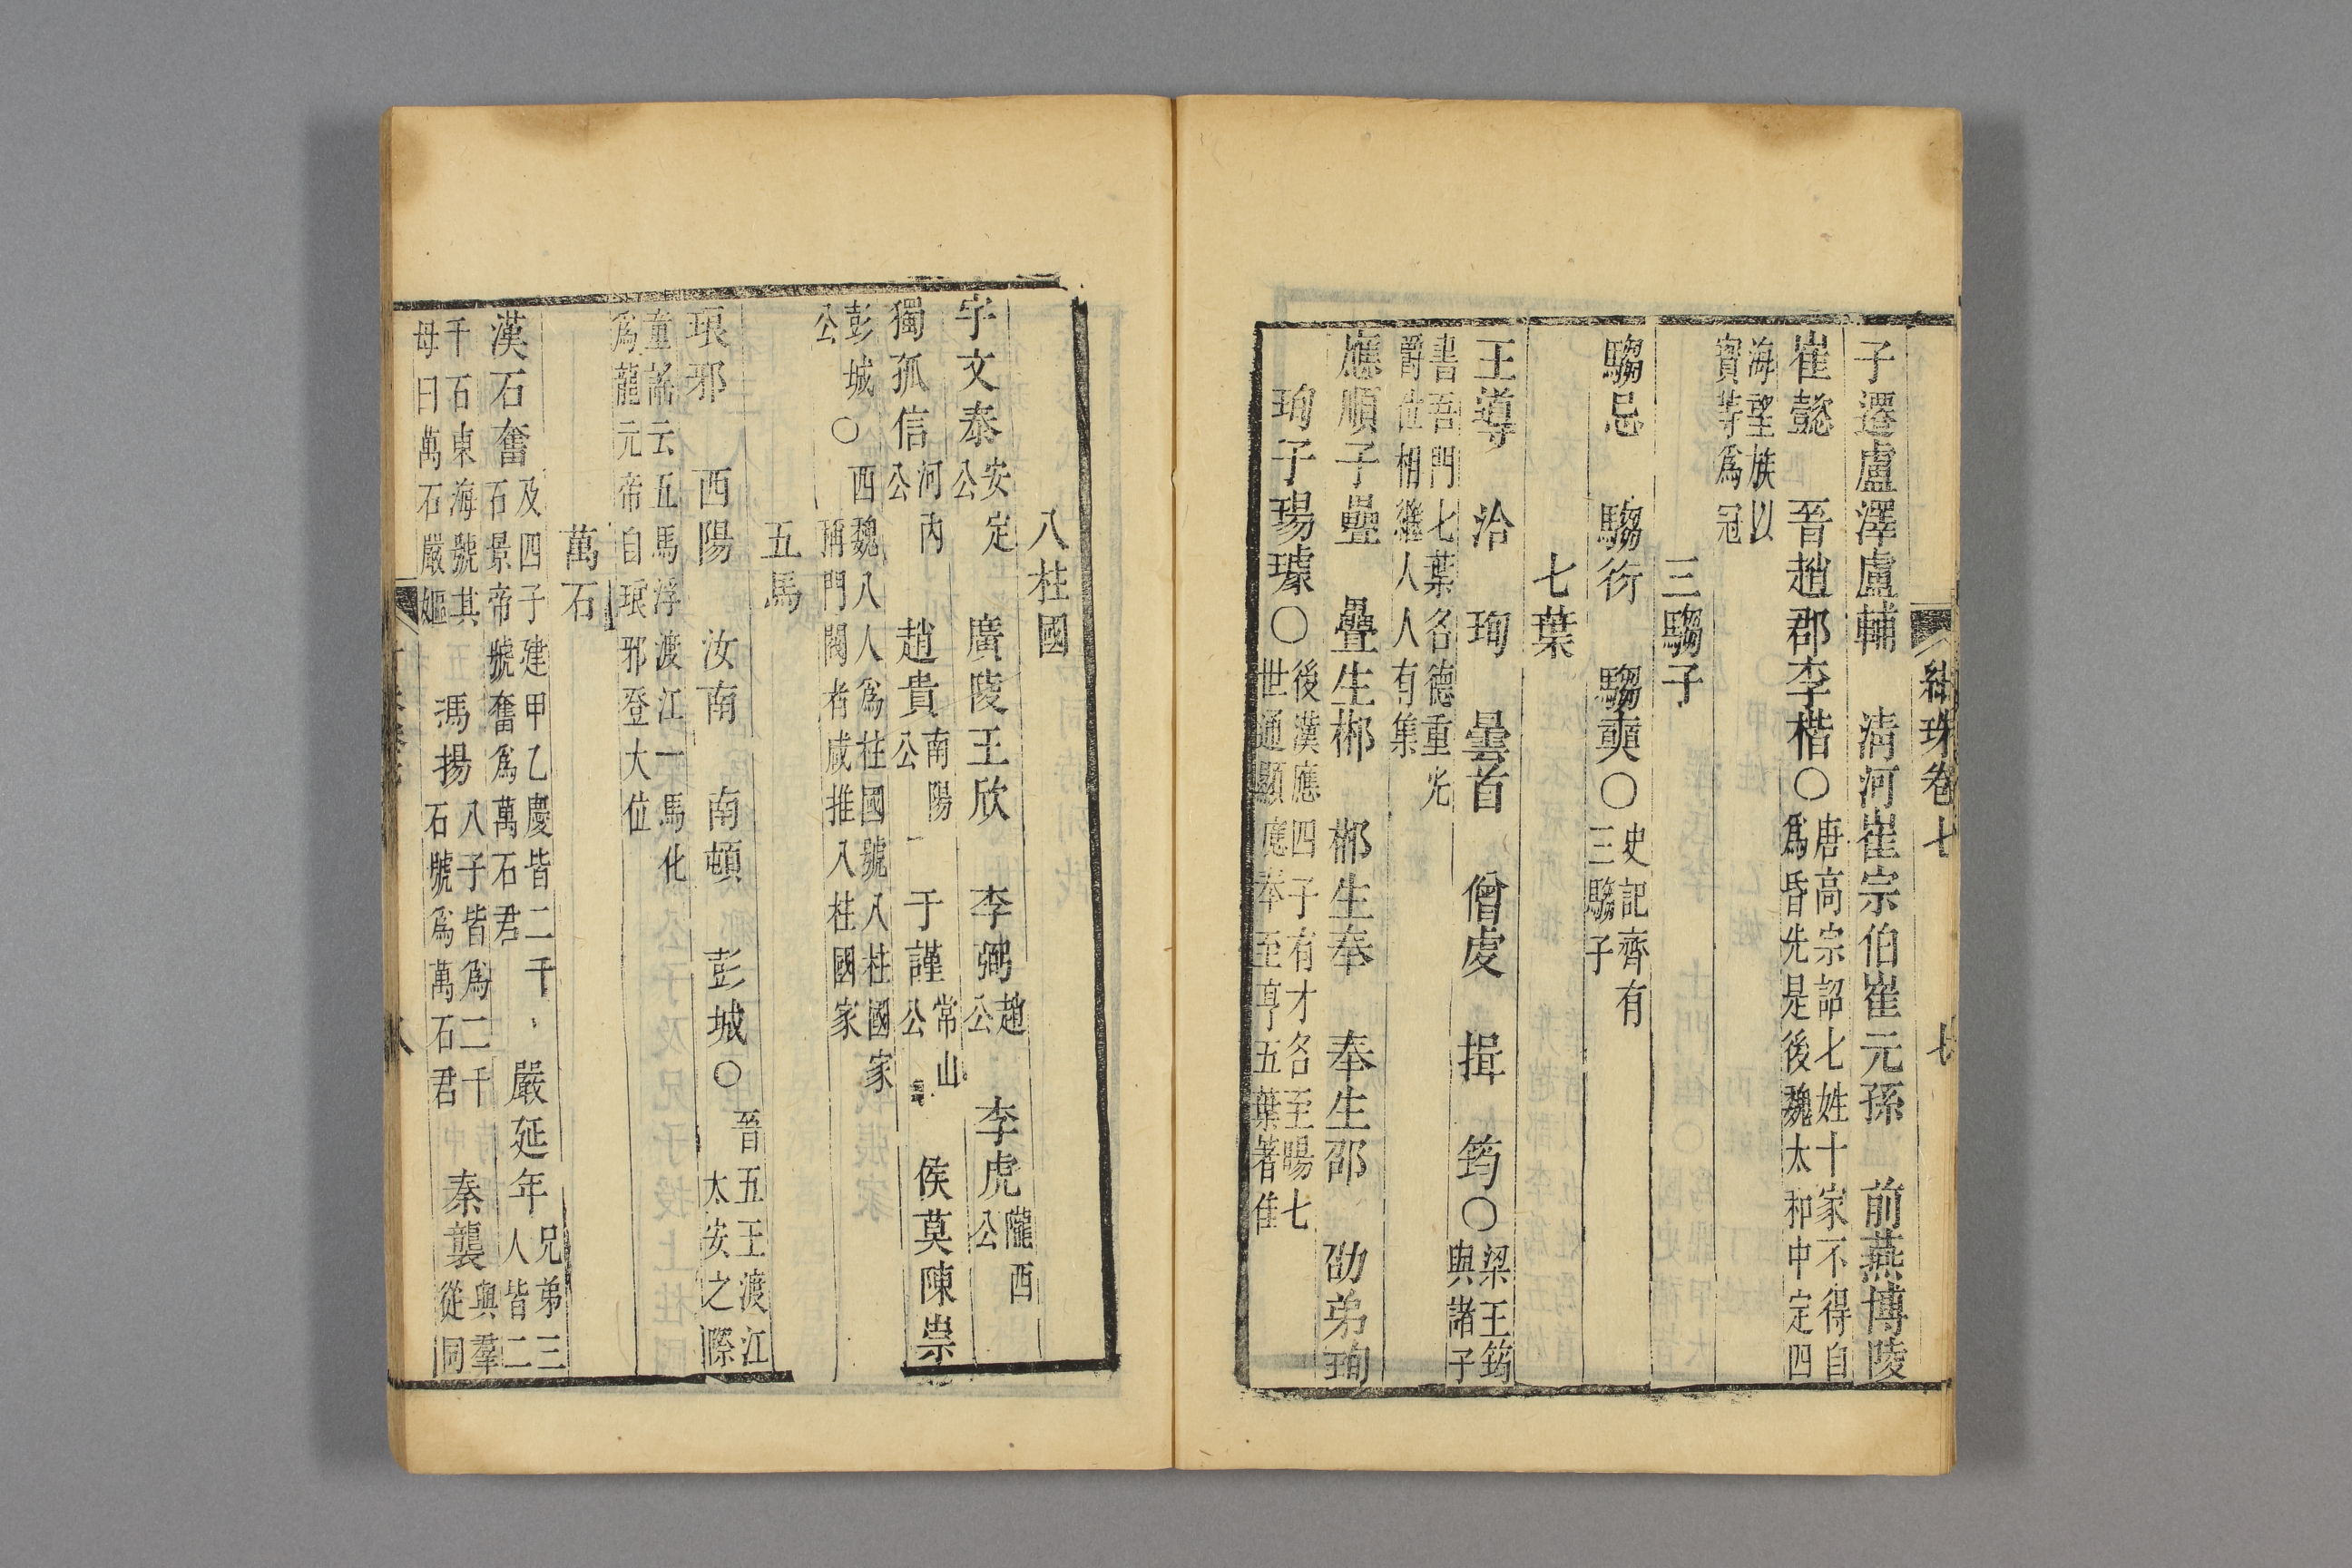 紺珠卷七 七
子遷盧澤盧輔 淸河崔宗伯崔元孫 前燕博陵
崔懿 晉趙郡李楷〇唐高宗詔七姓十家不得自
爲昏先是後魏太和中定四
海望族以
寶等爲冠
三騶子
騶忌 騶衍 騶奭〇史記齊有
三騶子
七葉
王導 洽 珣 曇首 僧虔 揖 筠〇梁王筠
與諸子
書吾門七葉名德重光
爵位相繼人人有集
應順子疊 疊生郴 郴生奉 奉生邵 劭弟珣
珣子瑒璩〇後漢應四子有才名至瑒七
世通顯應奉至享五葉著隹
八柱國
宇文泰安定
公 廣陵王欣 李弼趙
公 李虎隴西
公
獨孤信河內
公 趙貴南陽
公 于謹常山
公 侯莫陳崇
彭城
公〇西魏八人爲柱國號八柱國家
稱門閥者咸推八柱國家
五馬
琅邪 西陽 汝南 南頓 彭城〇晉五王渡江
太安之際
童謠云五馬浮渡江一馬化
爲龍元帝自琅邪登大位
萬石
漢石奮及四子建甲乙慶皆二千
石景帝號奮爲萬石君 嚴延年兄弟三
人皆二
千石東海號其
母曰萬石嚴嫗 馮揚八子皆爲二千
石號爲萬石君 秦襲與羣
從同
八